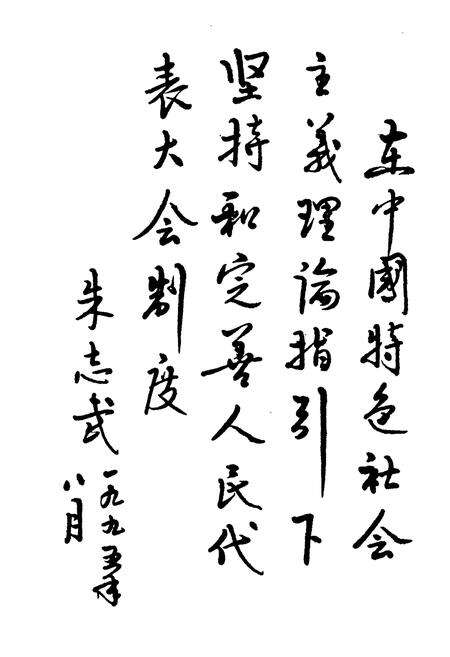 在中國特色社会
主義理論指引下
坚持和完善人民代
表大会制度
朱志武
一九九五年
八月